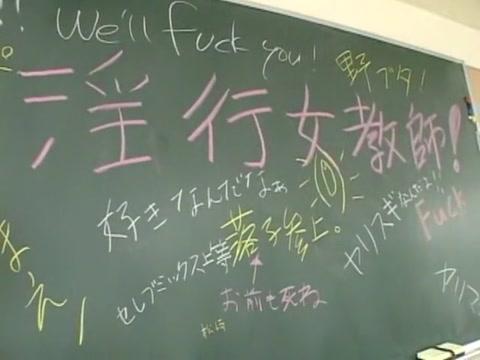 !! We'll Fuck you!
野ブタ!
淫行女教師!
好きなんだなぁ
Fuck
ヤリスギなんだよ!!
落子参上。
セレブミックス上等
お前も死ね
ヤリマ
松崎